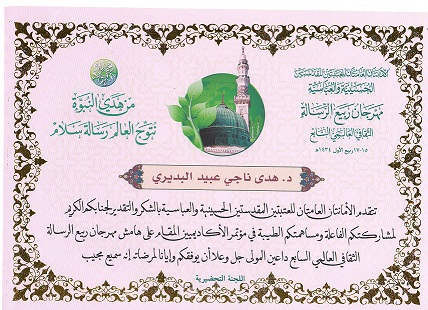 الأمانتان العامتان للعتبتين المقدستين
الحسينية والعباسية
مهرجان ربيع الرسالة
الثقافي العالمي السابع
١٥-١٧ ربيع الأول ١٤٣٤هـ
من هدي النبوة
نتوج العالم رسالة سلام
د. هدى ناجي عبيد البديري
تتقدم الأمانتان العامتان للعتبتين المقدستين الحسينية والعباسية بالشكر والتقدير لجنابكم الكريم
لمشاركتكم الفاعلة ومساهمتكم الطيبة في مؤتمر الأكاديميين المقام على هامش مهرجان ربيع الرسالة
الثقافي العالمي السابع داعين المولى جل وعلا أن يوفقكم وإيانا لمرضاته إنه سميع مجيب
اللجنة التحضيرية